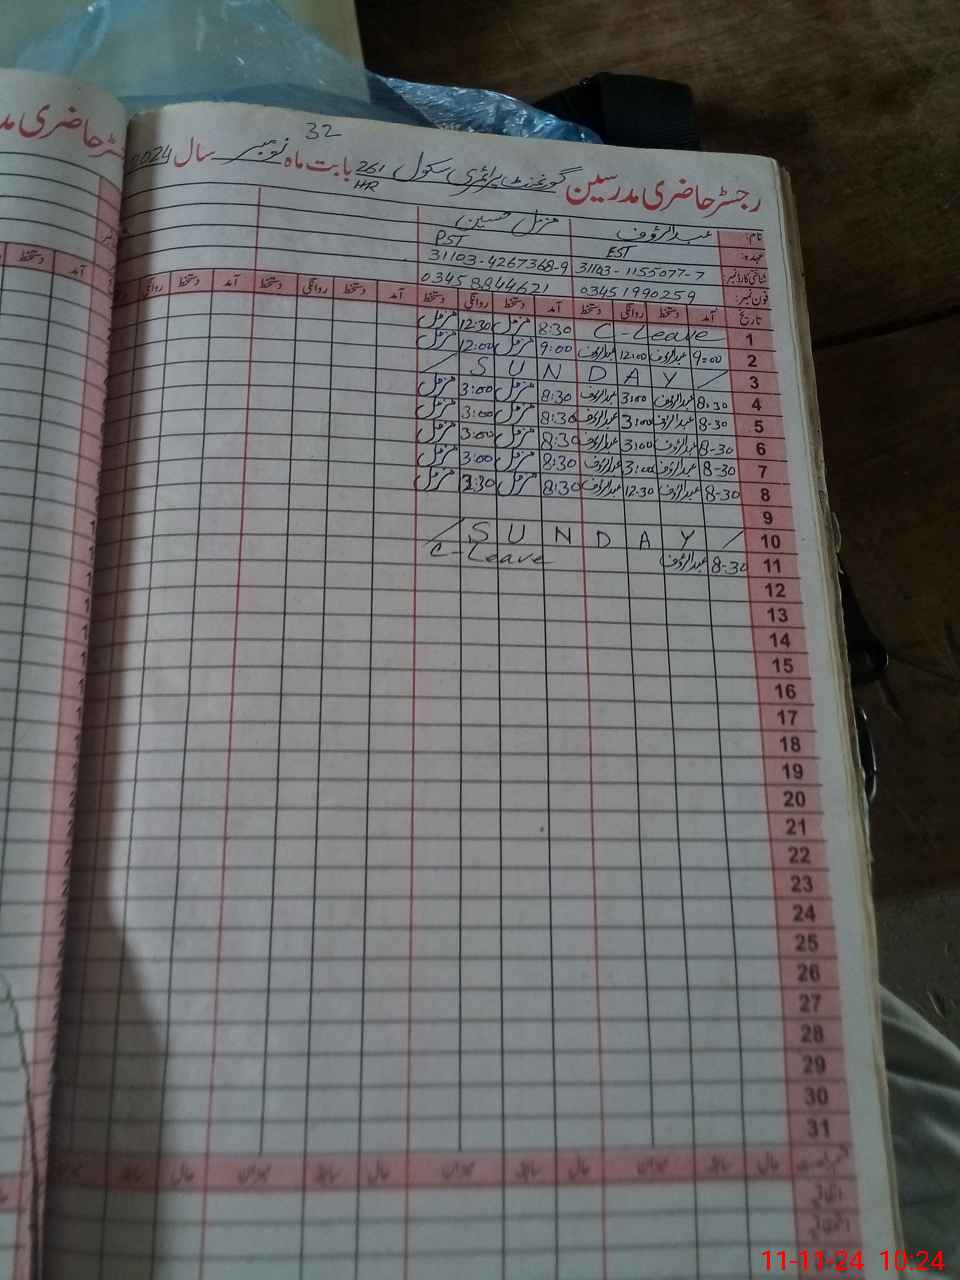 32
رجسٹر حاضری مدرسین گورنمنٹ پرائمری سکول 261/HR بابت ماہ نومبر سال 2024
نام: عبدالرؤف مزمل حسین
عہدہ: EST PST
شناختی کارڈ نمبر: 31103-1155077-7 31103-4267368-9
فون نمبر: 03451990259 03458844621
تاریخ آمد دستخط روانگی دستخط آمد دستخط روانگی دستخط آمد دستخط روانگی دستخط آمد دستخط روانگی
1 C-Leave 8:30 مزمل 12:30 مزمل
2 9:00 عبدالرؤف 12:00 عبدالرؤف 9:00 مزمل 12:00 مزمل
3 / S U N D A Y /
4 8:30 عبدالرؤف 3:00 عبدالرؤف 8:30 مزمل 3:00 مزمل
5 8-30 عبدالرؤف 3:00 عبدالرؤف 8:30 مزمل 3:00 مزمل
6 8-30 عبدالرؤف 3:00 عبدالرؤف 8:30 مزمل 3:00 مزمل
7 8-30 عبدالرؤف 3:00 عبدالرؤف 8:30 مزمل 3:00 مزمل
8 8-30 عبدالرؤف 12-30 عبدالرؤف 8:30 مزمل مزمل
9
10 / S U N D A Y /
11 8-30 عبدالرؤف C-Leave
12
13
14
15
16
17
18
19
20
21
22
23
24
25
26
27
28
29
30
31
حال سابقہ میزان حال سابقہ میزان حال سابقہ میزان حال سابقہ میزان
اتفاقیہ
11-11-24 10:24